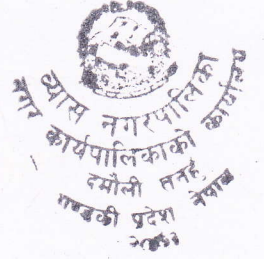 व्यास नगरपालिका
नगर कार्यपालिकाको कार्यालय
दमौली तनहुँ
गण्डकी प्रदेश नेपाल